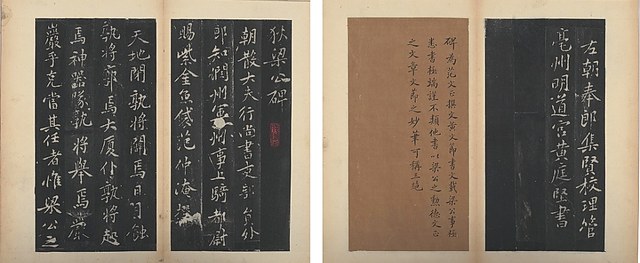 狄梁公碑
朝散大夫行尚書吏部員外
郎知潤州軍州事上騎都尉
賜紫金魚袋范仲淹撰
天地閉孰將闢焉日月蝕
孰將廓焉大厦仆孰將起
焉神器墜孰將舉焉巖
巖乎克當其任者惟梁公之
左朝奉郎集賢校理管
亳州明道宫黄庭堅書
碑為范文公撰文黄文節書文載梁公事極
悉書極端謹不類他書以梁公之勲德文公
之文章文節之妙筆可稱三絶